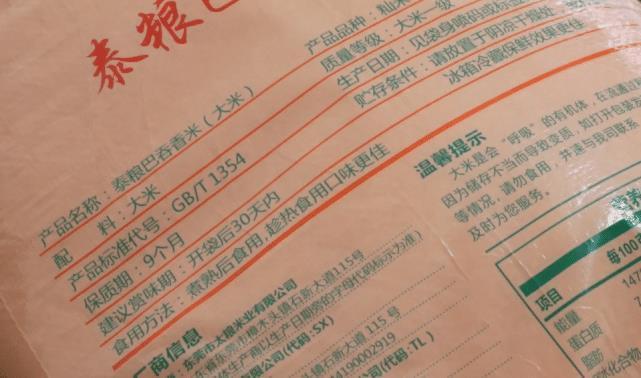 泰粮巴
产品名称：泰粮巴吞香米（大米）
配 料：大米
产品标准代号：GB/T 1354
保质期：9个月
建议赏味期：开袋后30天内
食用方法：煮熟后食用，趁热食用口味更佳
产品品种：籼米
质量等级：大米一级
生产日期：见袋身喷码或标签
贮存条件：请放置于阴凉干燥处
冰箱冷藏保鲜效果更佳
温馨提示
大米是会“呼吸”的有机体，在流通过
因为储存不当而导致变质，如打开包装
等情况，请勿食用，并速与我司联系
及时为您服务。
商信息
东莞市太粮米业有限公司
东莞市道木头镇石新大道115号
体生产商以生产日期旁的字母代码标示为准）
有限公司(代码:SX)
头镇石新大道 115 号
4190002919
公司(代码:TL)
营养
项目
每100
能量
147
蛋白质
脂肪
碳水化合物